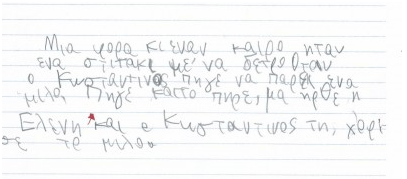 Μια φορα κι εναν καιρο ηταν
ενα σπιτακι με' να δετρο οταν
ο Κωσταντινος πηγε να παρει ενα
μιλο, Πηγε και το πηρε, μα ηρθε η
Ελενη και ο Κωσταντινος τη, χαρι
σε το μιλο